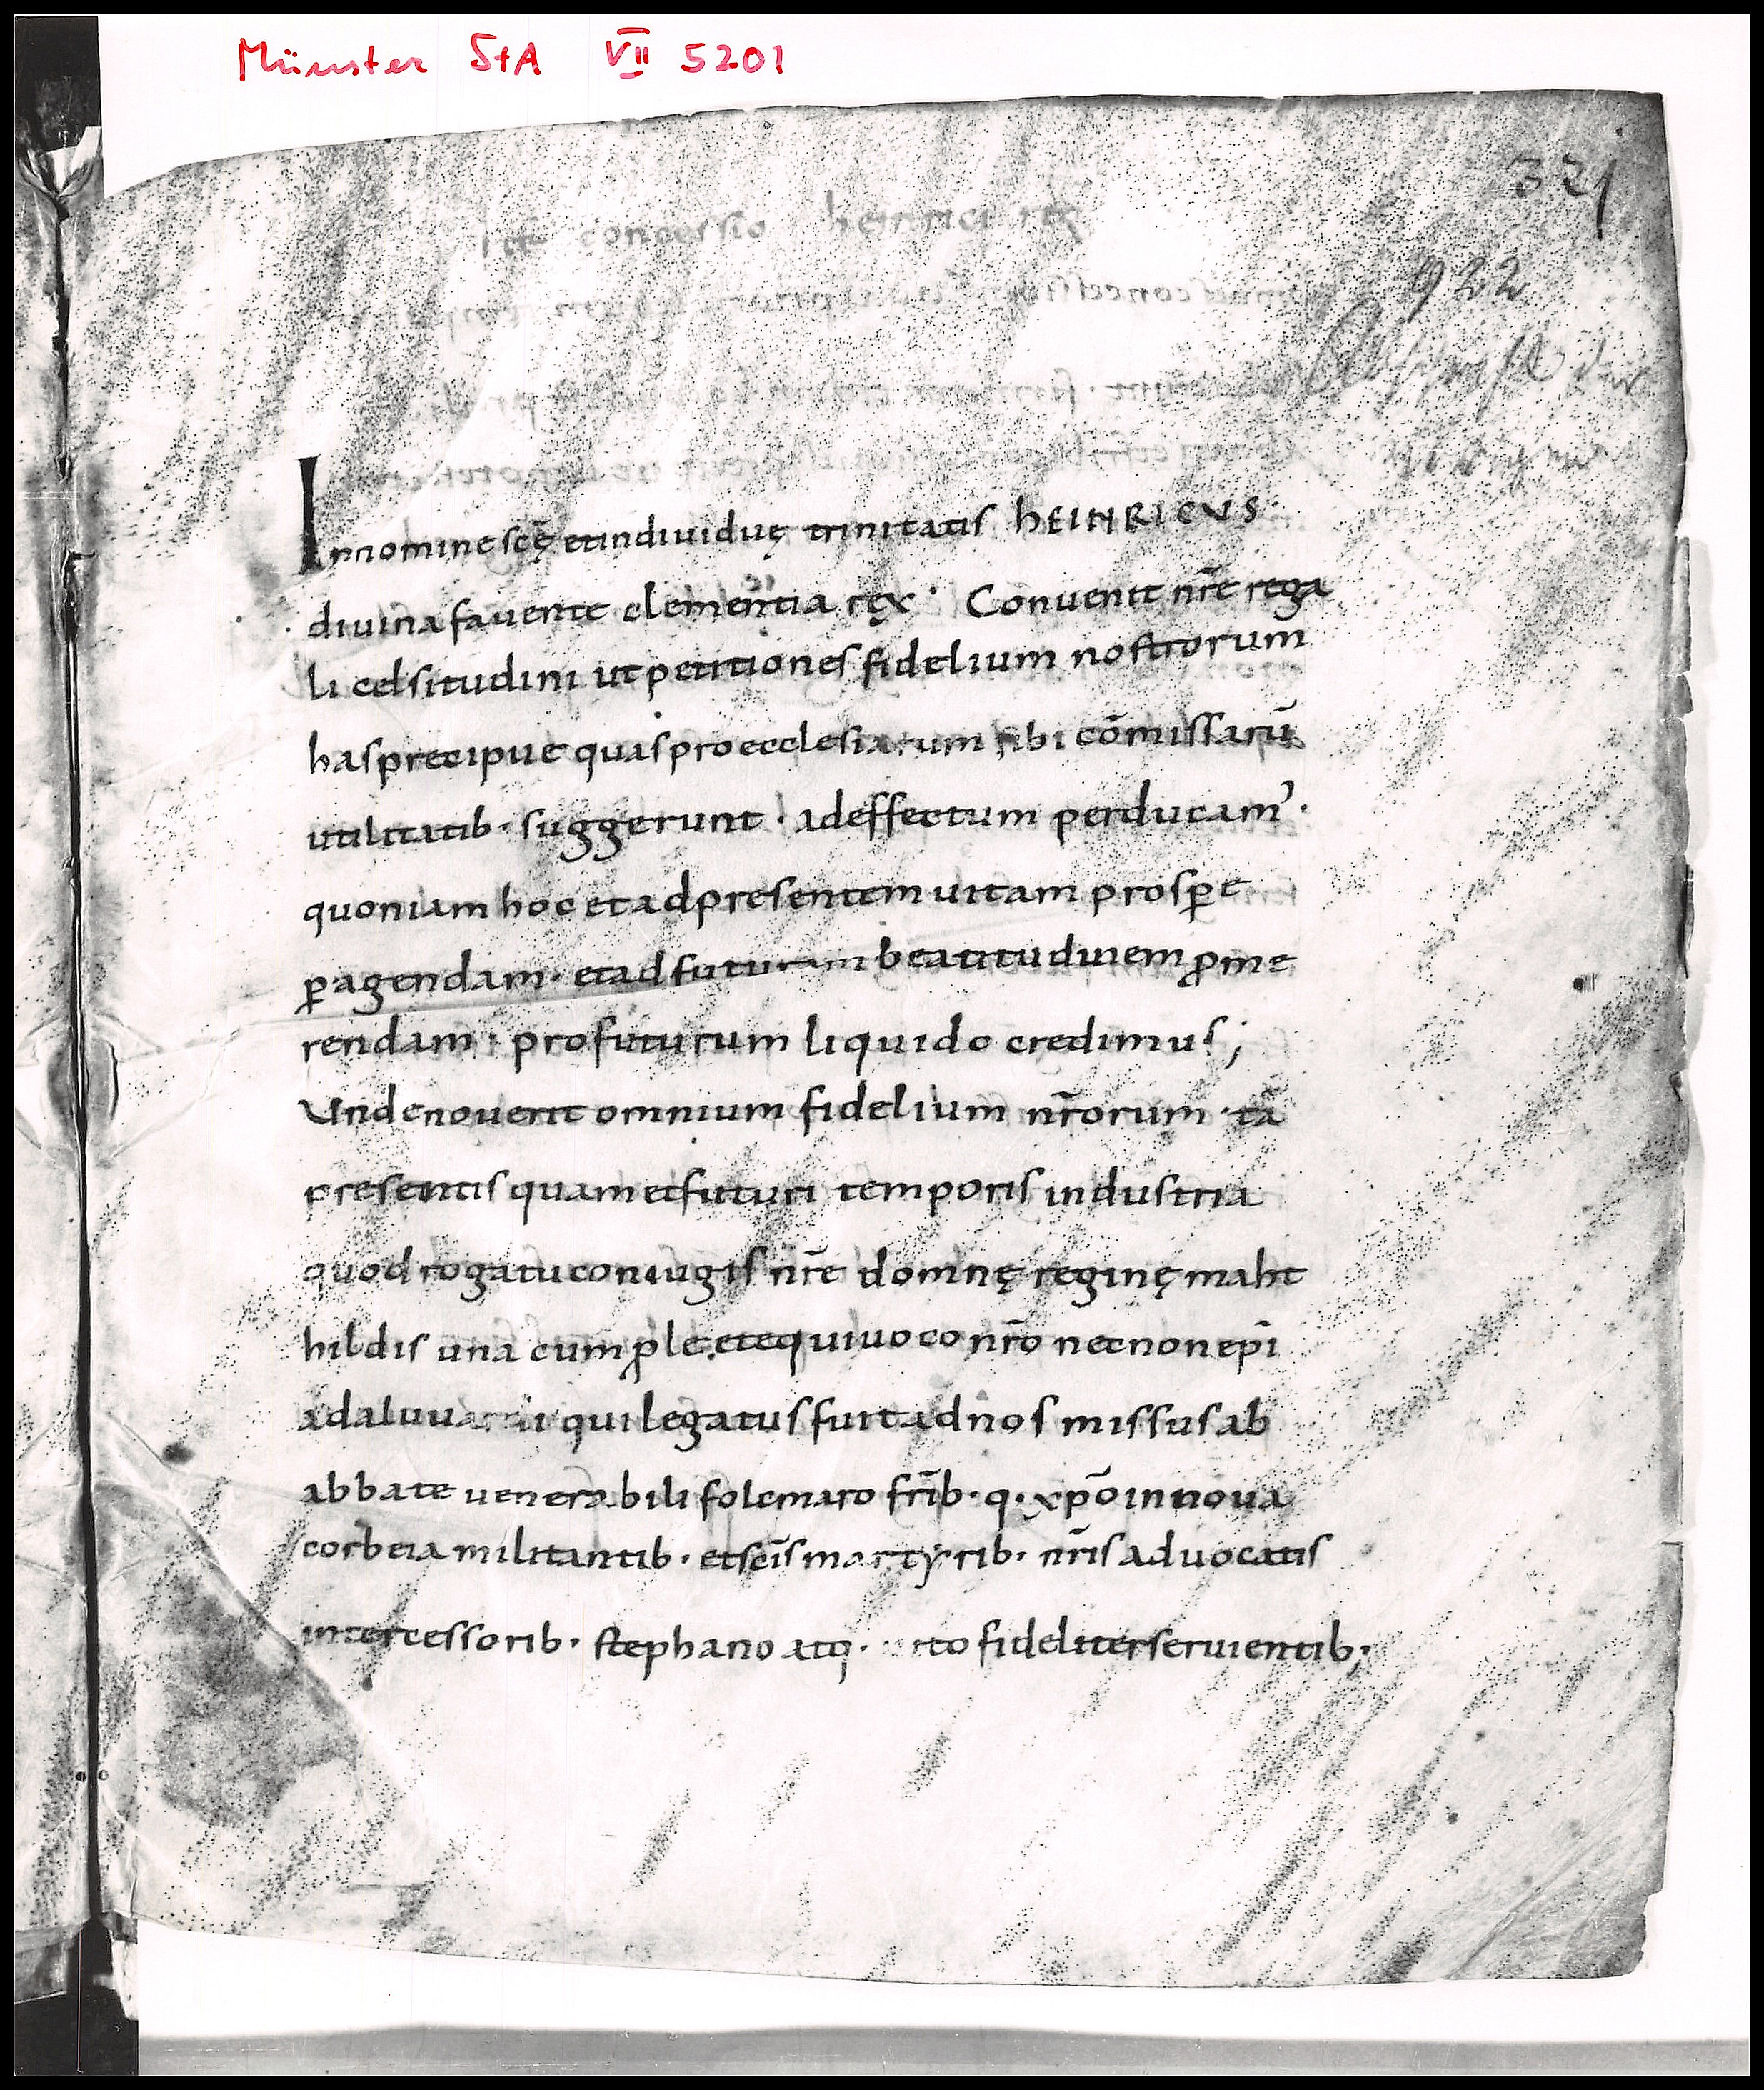 Münster StA VII 5201
321
concessio heinrici reg
922
In nomine scę et indiuiduę trinitatis hEINRICVS
diuina fauente clementia rex· Conuenit nr̄e rega
li celsitudini ut petitiones fidelium nostrorum
has precipue quas pro ecclesiarum sibi cōmissarū
utilitatib· suggerunt· ad effectum perducam᾽·
quoniam hoc et ad presentem uitam prosꝑe
ꝑagendam· et ad futuram beatitudinem ꝓme
rendam· profuturum liquido credimus;
Unde nouerit omnium fidelium nr̄orum· tā
presentis quam et futuri temporis industria
quod rogatu coniugis nr̄e domnę reginę maht
hildis una cum ꝓle et equiuoco nr̄o necnon epī
adaluuarii qui legatus fuit ad nos missus ab
abbate uenerabili folcmaro fr̄ib· q· xp̄o in noua
corbeia militantib· et sc̄is martyrib· nr̄is aduocatis
intercessorib· stephano atq· uito fideliter seruientib;